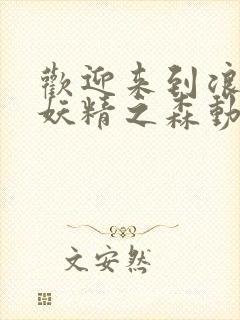 歡迎来到浪
妖精之森動
文安然